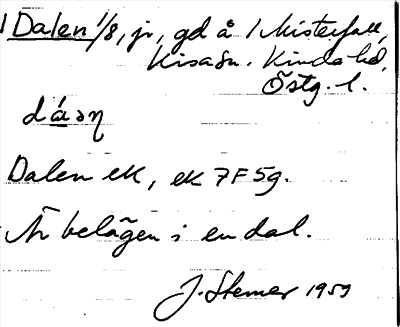 Dalen 1/8, jr, gd å 1 Misterfall,
Kisa sn. Kinda hd,
Östg. l.
dáəη
Dalen ek, ek 7F5g.
Är belägen i en dal.
J. Stemer 1959